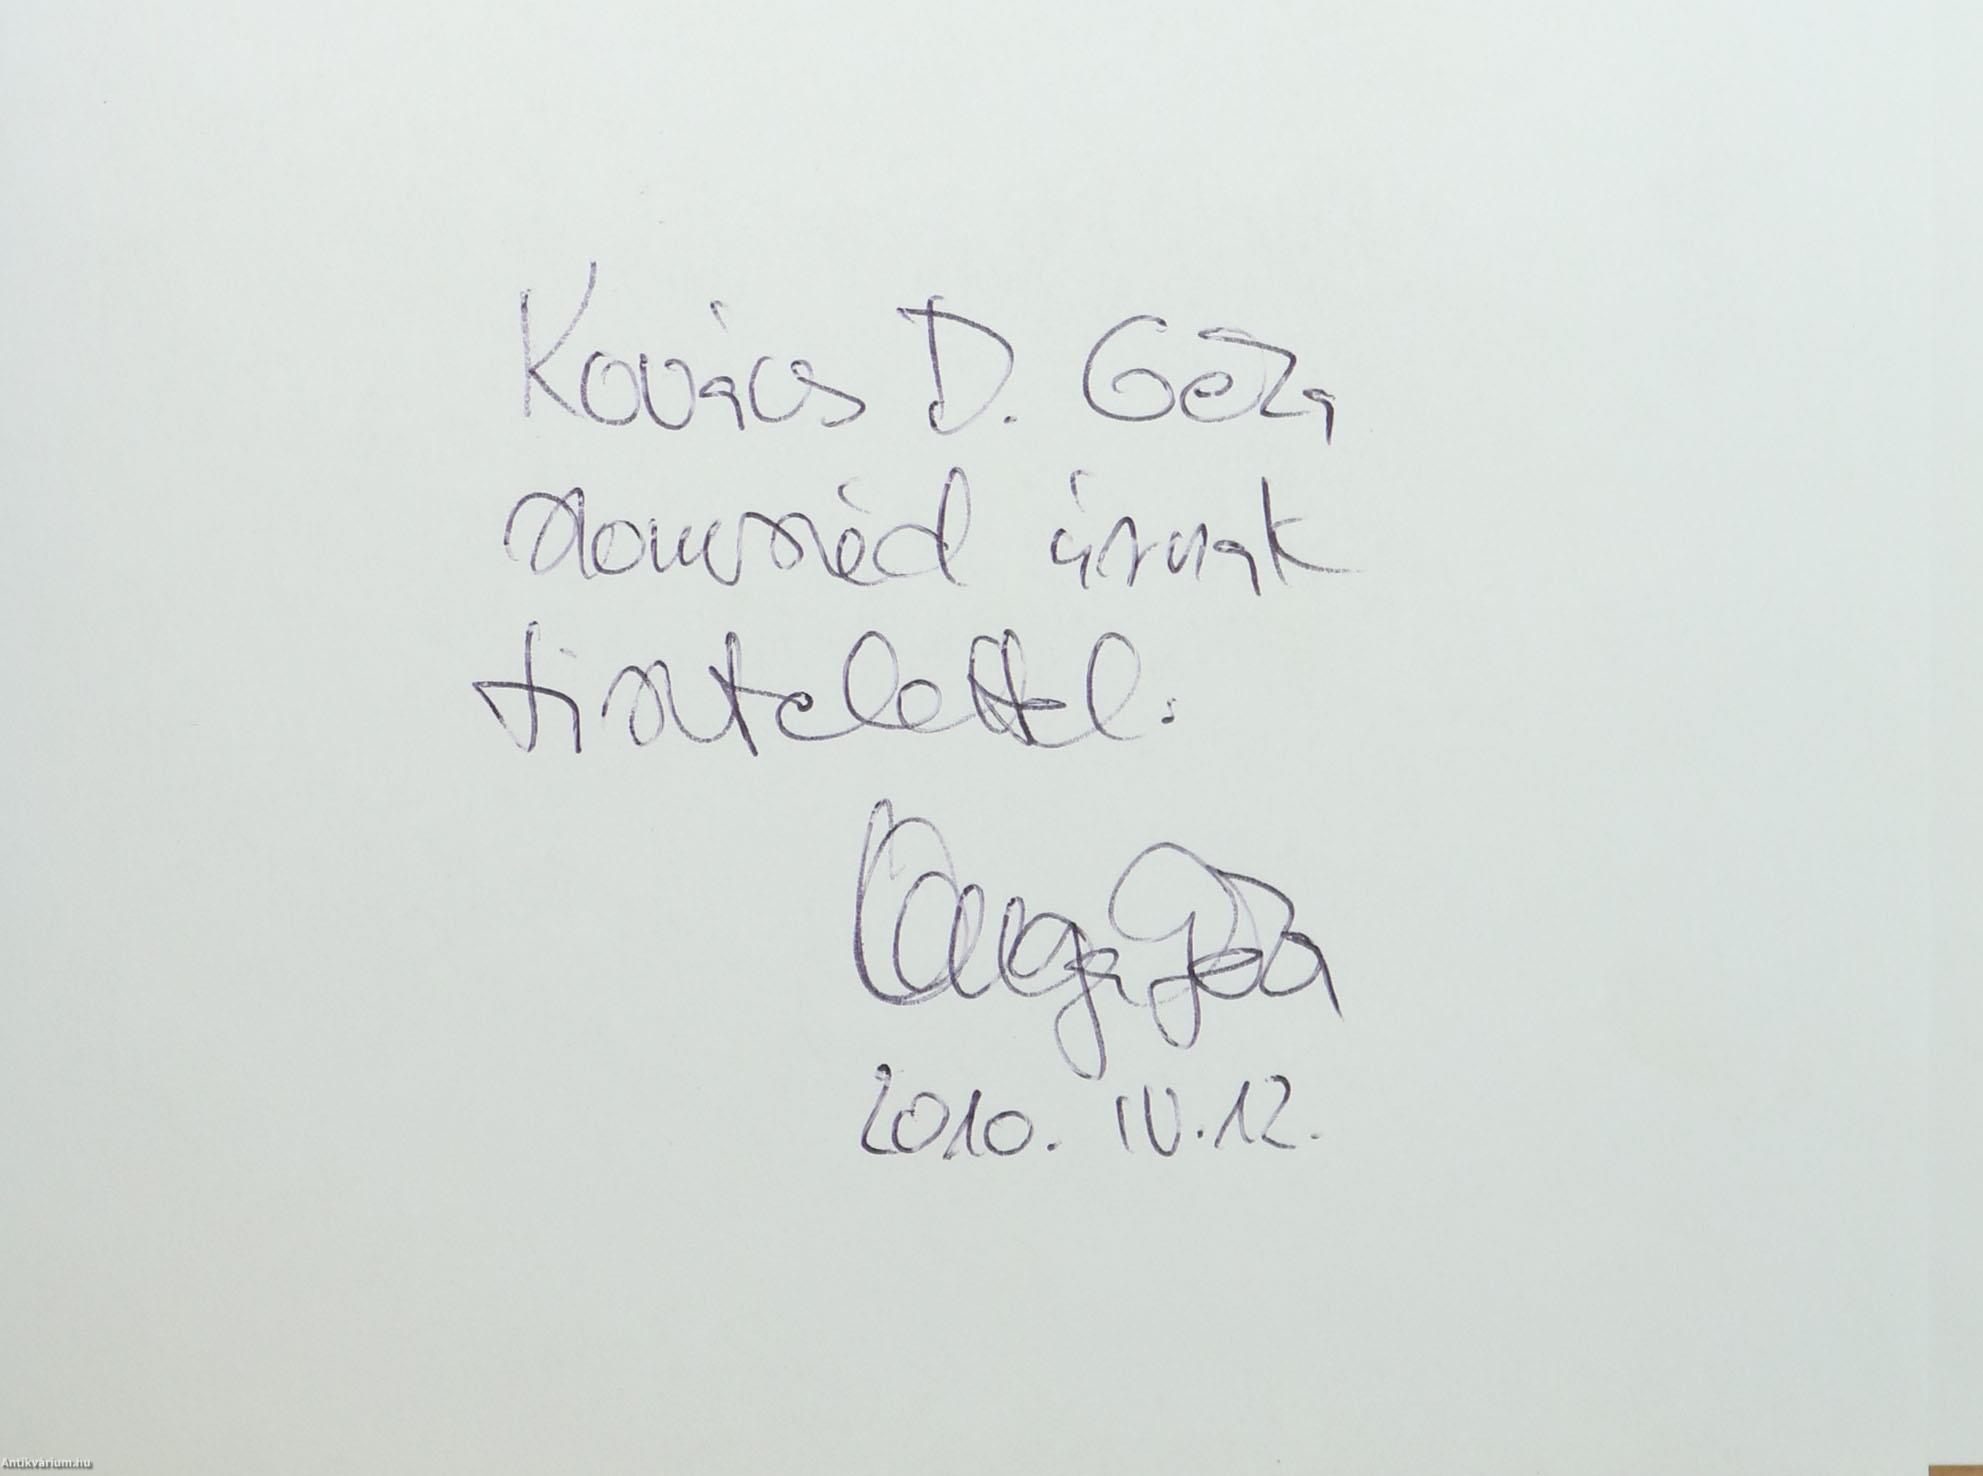 Kovács D. Géza
szomszéd úrnak
tisztelettel:
Varga Géza
2010. IV. 12.
Antikvárium.hu